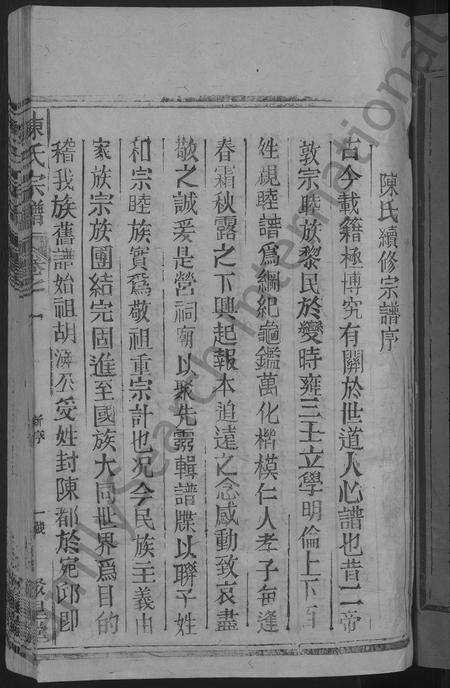 陳氏續修宗譜序
古今載籍極博究有關於世道人心譜也昔二帝
敦宗睦族黎民於變時雍三王立學明倫上下百
姓親睦譜為綱紀龜鑑萬化楷模仁人孝子每逢
春霜秋露之下興起報本追遠之念感動致哀盡
敬之誠爰是營祠廟以聚先靈輯譜牒以聯子姓
和宗睦族實為敬祖重宗計也况今民族主義由
家族宗族團結完固進至國族大同世界為目的
稽我族舊譜始祖胡滿公受姓封陳都於宛邱即
陳氏宗譜 卷之一
新序
FamilySearch International